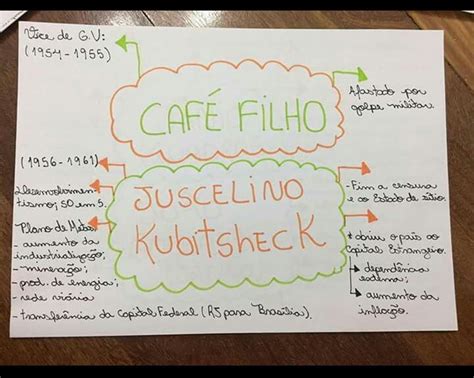 Vice de G.V:
(1954-1955)
CAFÉ FILHO
Afastado por
golpe militar.
(1956-1961)
Desenvolvimen-
tismo; 50 em 5.
- Plano de Metas:
- aumento da
industrialização;
- mineração;
- prod. de energia;
- rede viária
- transferência da Capital Federal (RJ para Brasília).
JUSCELINO
KubitsHecK
- Fim a censura
e ao Estado de sítio.
* abriu o país ao
Capital Estrangeiro.
dependência
externa;
aumento da
inflação.